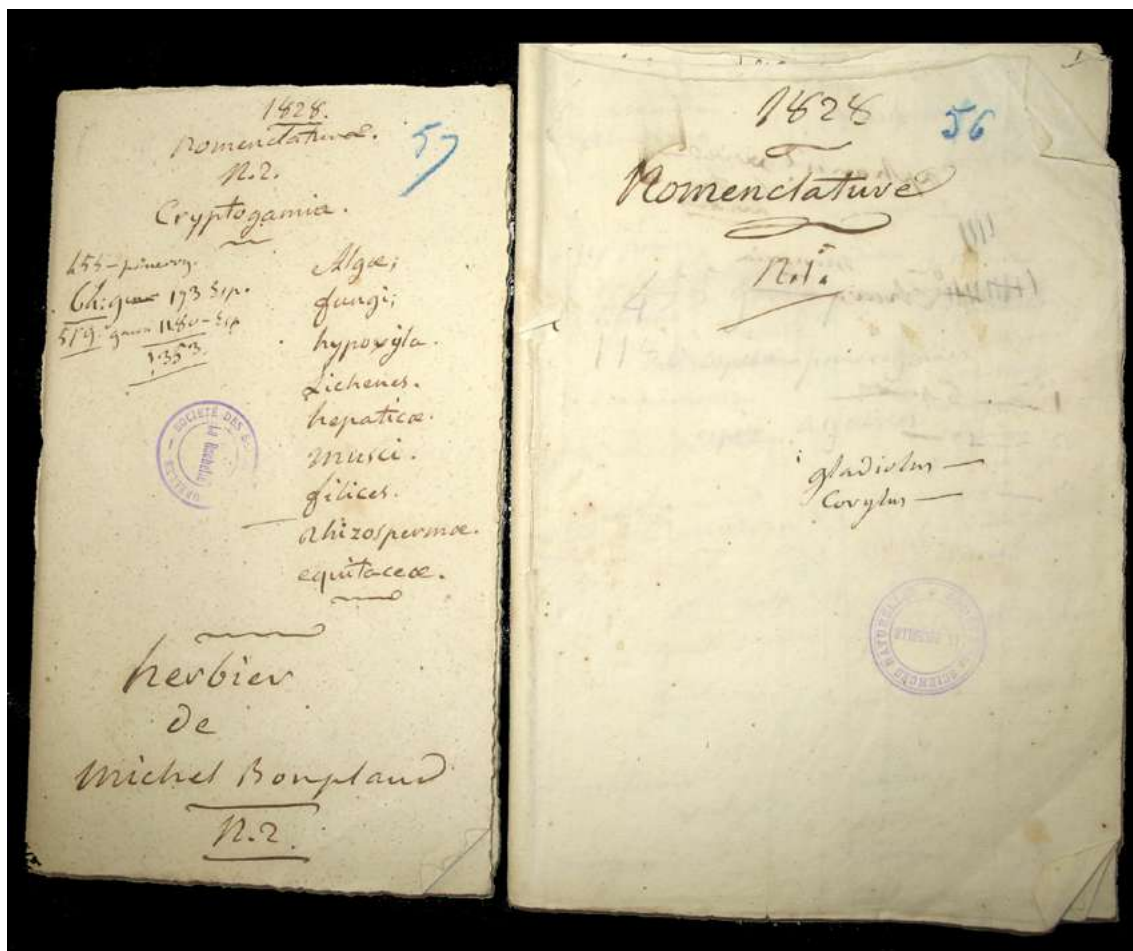 1828.
Nomenclature.
57
N.2.
Cryptogamia.
455-
64: 173 Sp.
519. genera 1180-Sp
1353.
Algæ;
fungi;
hypoxyla.
Lichenes.
hepaticæ.
musci.
filices.
Rhizospermæ.
equitaceæ.
SOCIÉTÉ DES
La Rochelle
herbier
de
Michel Bonpland
N.2.
1828
56
Nomenclature
N.1.
gladiolus —
Corylus —
SCIENCES NATURELLES
LA ROCHELLE